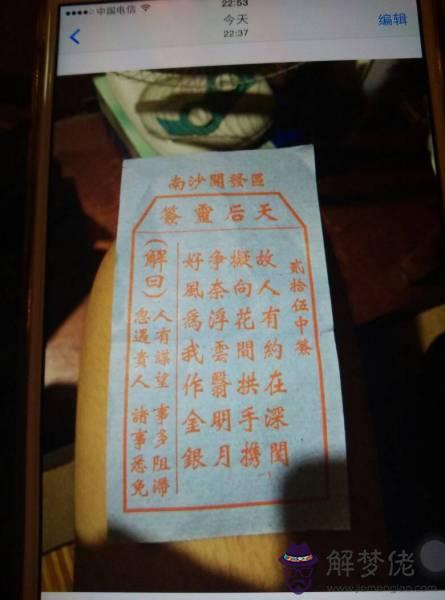 中国电信
22:53
今天
22:37
编辑
南沙開發區
天后靈簽
貳拾伍中簽
故人有約在深閨
擬向花間拱手携
争奈浮雲翳明月
好風爲我作金銀
(解曰)
人有謀望 事多阻滯
忽遇貴人 諸事悉免
解梦佬